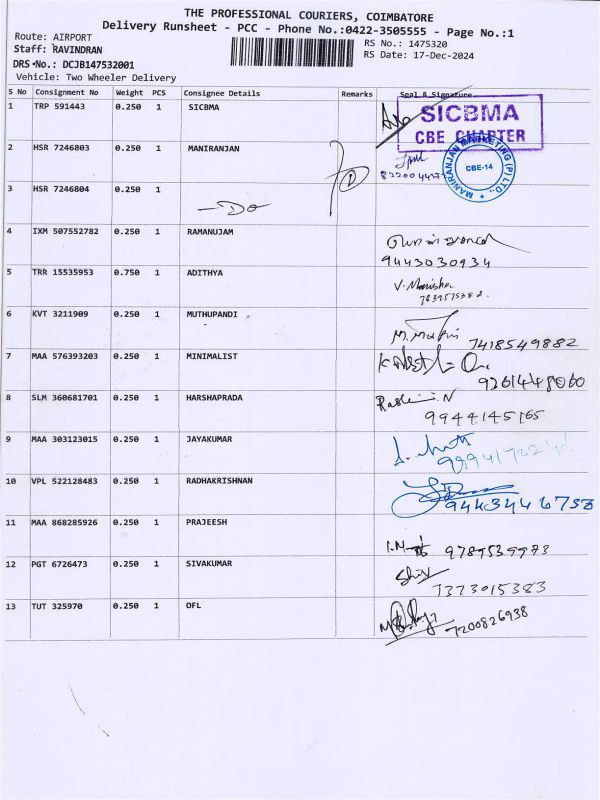 THE PROFESSIONAL COURIERS, COIMBATORE
Delivery Runsheet - PCC - Phone No.:0422-3505555 - Page No.:1
Route: AIRPORT
Staff: RAVINDRAN
RS No.: 1475320
RS Date: 17-Dec-2024
DRS No.: DCJB147532001
Vehicle: Two Wheeler Delivery
S No Consignment No Weight PCS Consignee Details Remarks Seal & Signature
1 TRP 591443 0.250 1 SICBMA
SICBMA
CBE CHAPTER
2 HSR 7246803 0.250 1 MANIRANJAN
MANIRANJAN MARKETING (P) LTD.,
CBE-14
3 HSR 7246804 0.250 1
—Do
4 IXM 507552782 0.250 1 RAMANUJAM
9443030934
5 TRR 15535953 0.750 1 ADITHYA
V. Manisha
6 KVT 3211909 0.250 1 MUTHUPANDI
7418549882
7 MAA 576393203 0.250 1 MINIMALIST
9261448060
8 SLM 360681701 0.250 1 HARSHAPRADA
9944145165
9 MAA 303123015 0.250 1 JAYAKUMAR
10 VPL 522128483 0.250 1 RADHAKRISHNAN
11 MAA 868285926 0.250 1 PRAJEESH
12 PGT 6726473 0.250 1 SIVAKUMAR
7373015383
13 TUT 325970 0.250 1 OFL
7200826938